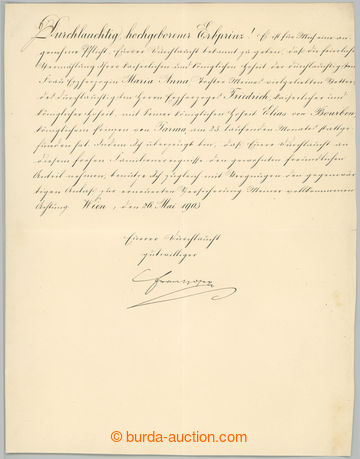 Durchlauchtig hochgeborener Erbprinz! Es ist für Mich eine an-
genehme Pflicht, Euerer Durchlaucht bekannt zu geben, daß die feierliche
Vermählung Ihrer kaiserlichen und königlichen Hoheit der durchlauchtigsten
Frau Erzherzogin Maria Anna, Tochter Meines vielgeliebten Vetters,
des durchlauchtigsten Herrn Erzherzoges Friedrich, kaiserlichen und
königlichen Hoheit, mit Seiner königlichen Hoheit Elias von Bourbon,
königlichem Prinzen von Parma, am 25. laufenden Monates stattge-
funden hat. Indem Ich überzeugt bin, daß Euere Durchlaucht an
diesem frohen Familienereignisse den gewohnten freundlichen
Antheil nehmen, benütze Ich zugleich mit Vergnügen den gegenwär-
tigen Anlaß zur erneuerten Versicherung Meiner vollkommenen
Achtung. Wien, den 26. Mai 1903
Euerer Durchlaucht
gutwilliger
© burda-auction.com